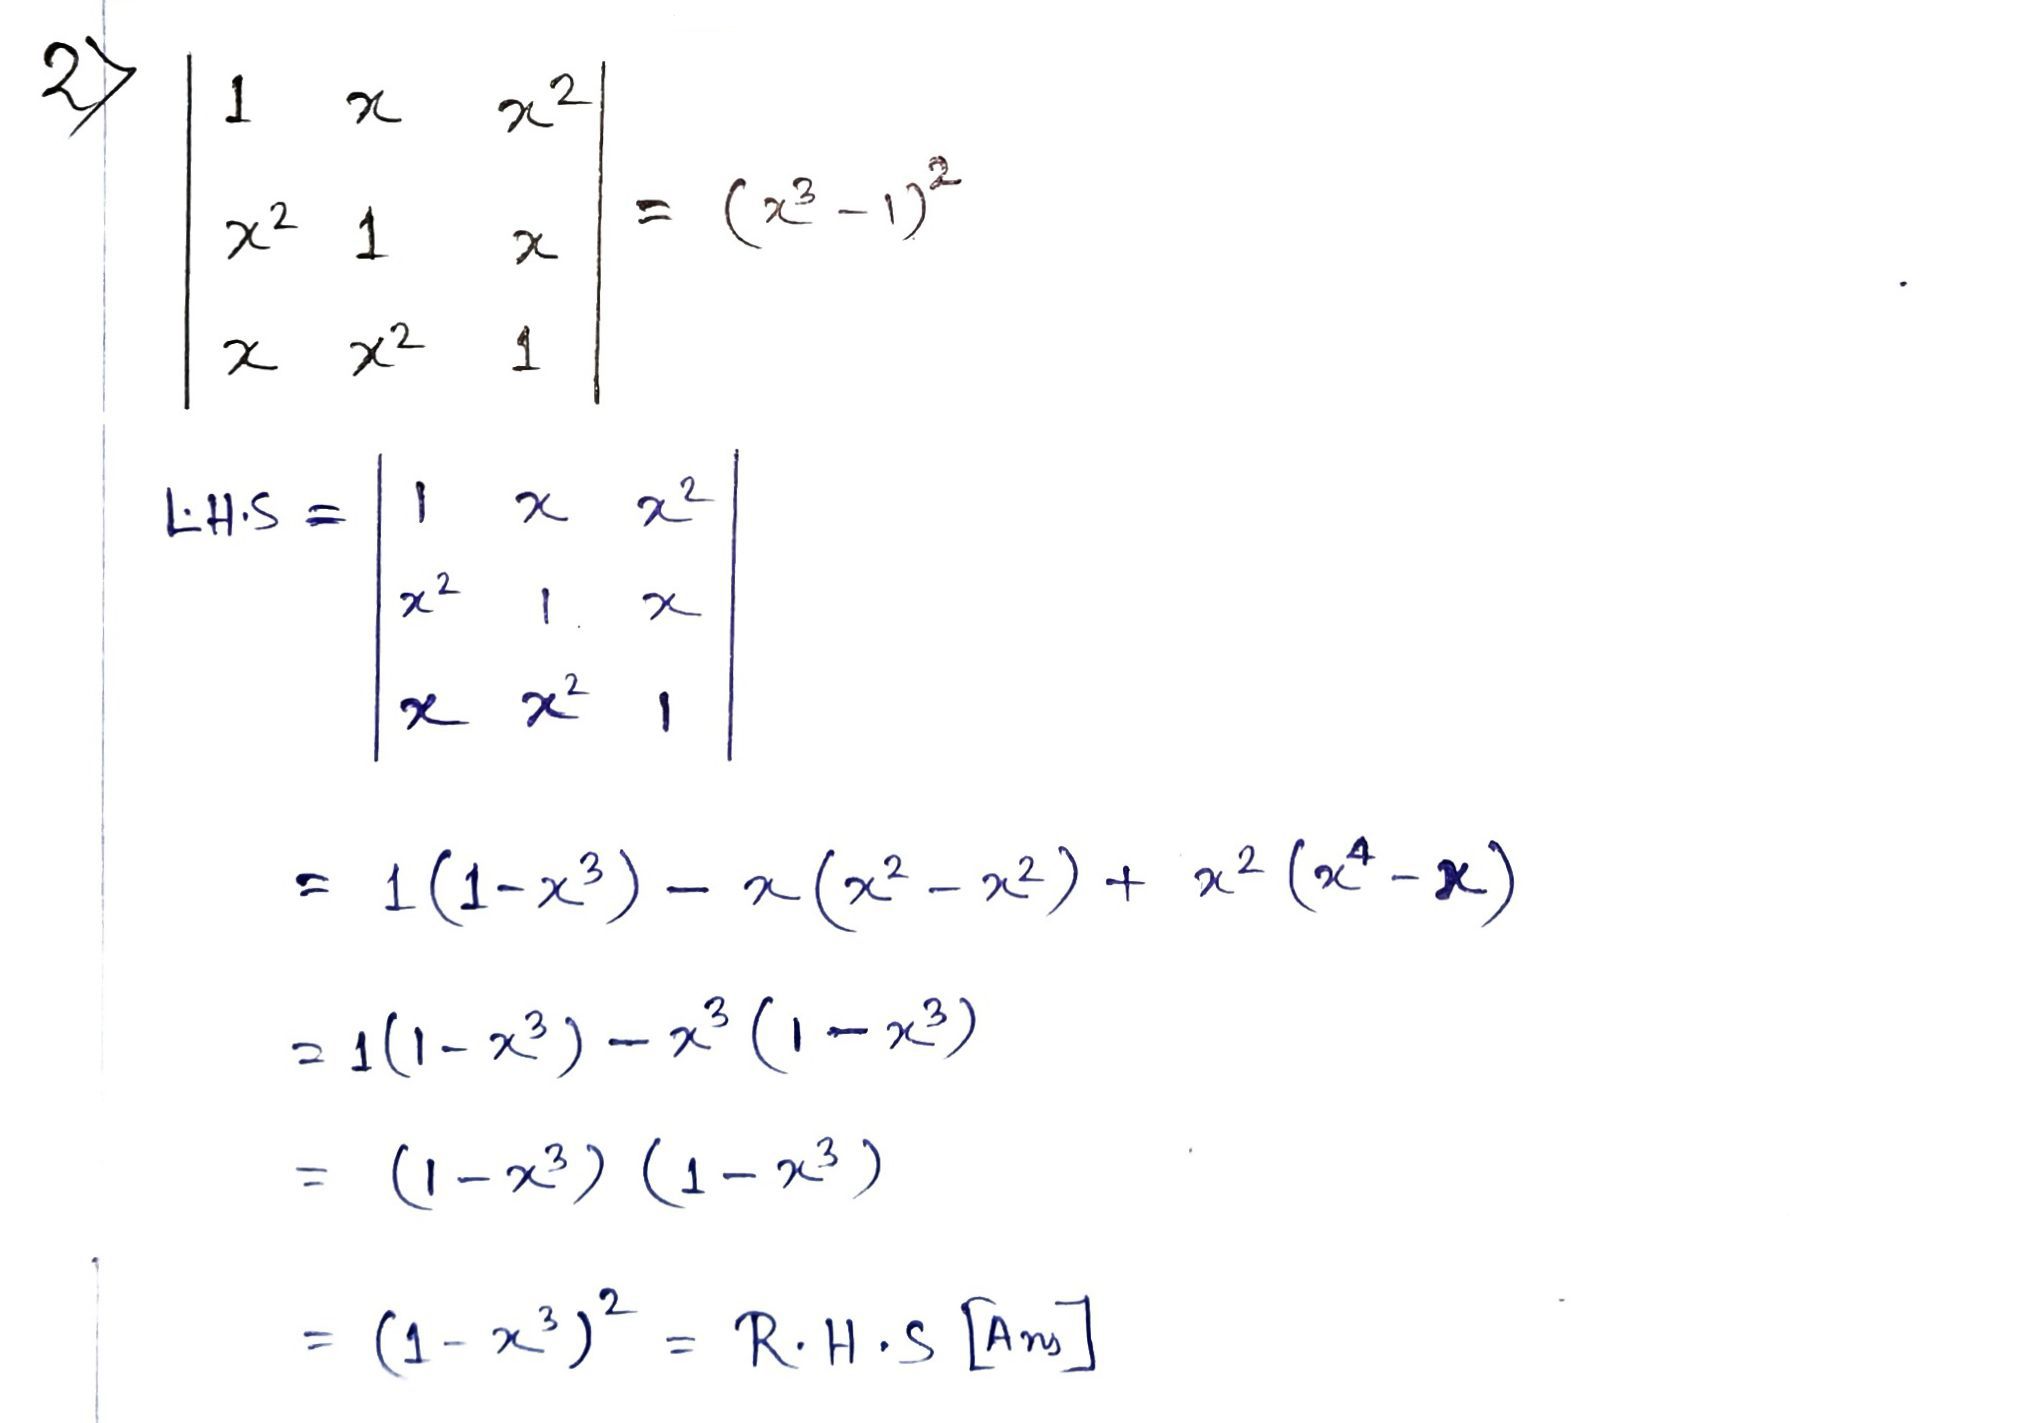 2>
| 1 x x² |
| x² 1 x | = (x³ - 1)²
| x x² 1 |
L.H.S = | 1 x x² |
| x² 1 x |
| x x² 1 |
= 1(1-x³) - x(x² - x²) + x²(x⁴ - x)
= 1(1 - x³) - x³(1 - x³)
= (1 - x³) (1 - x³)
= (1 - x³)² = R.H.S [Ans]